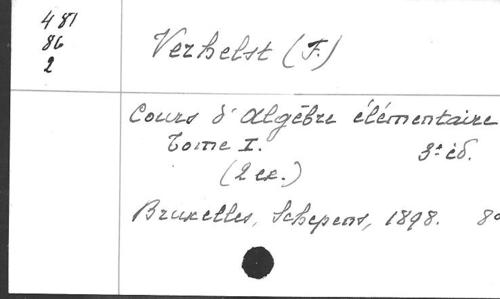 481
86
2
Verhelst (F.)
Cours d'Algèbre élémentaire
Tome I. 3e éd.
(2 ex.)
Bruxelles, Schepens, 1898. 8°